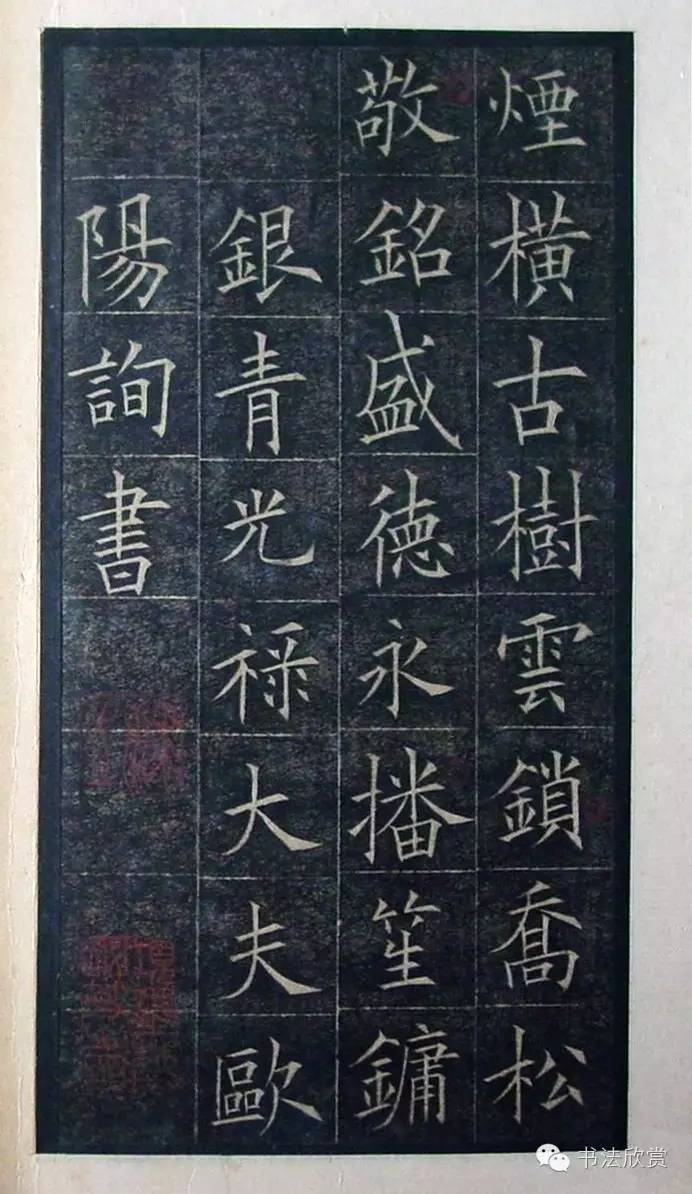 煙橫古樹雲鎖喬松
敬銘盛德永播笙鏞
銀青光祿大夫歐
陽詢書
书法欣赏